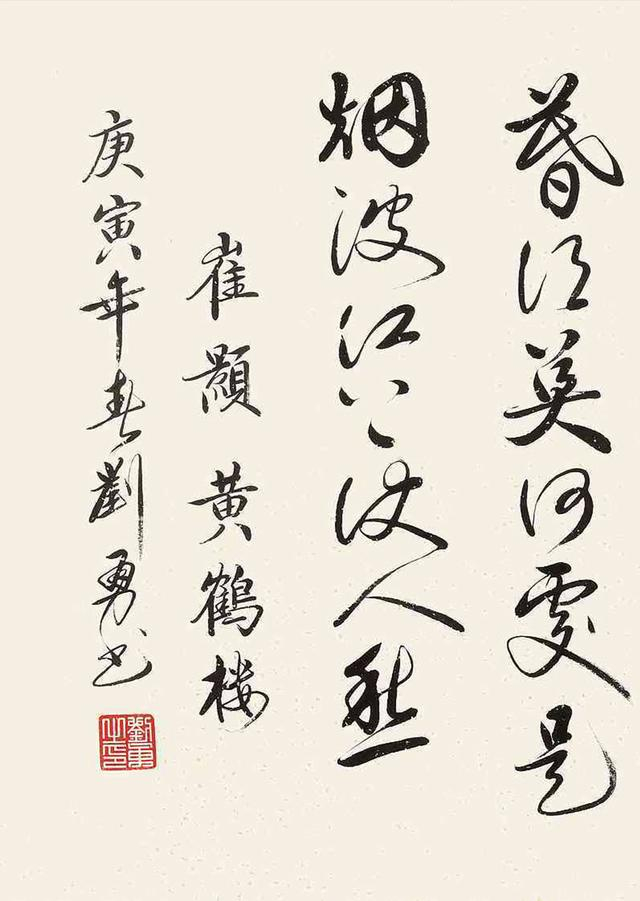 暮鄉關何處是
烟波江上使人愁
崔顥 黄鶴楼
庚寅年春劉勇书
劉勇之印